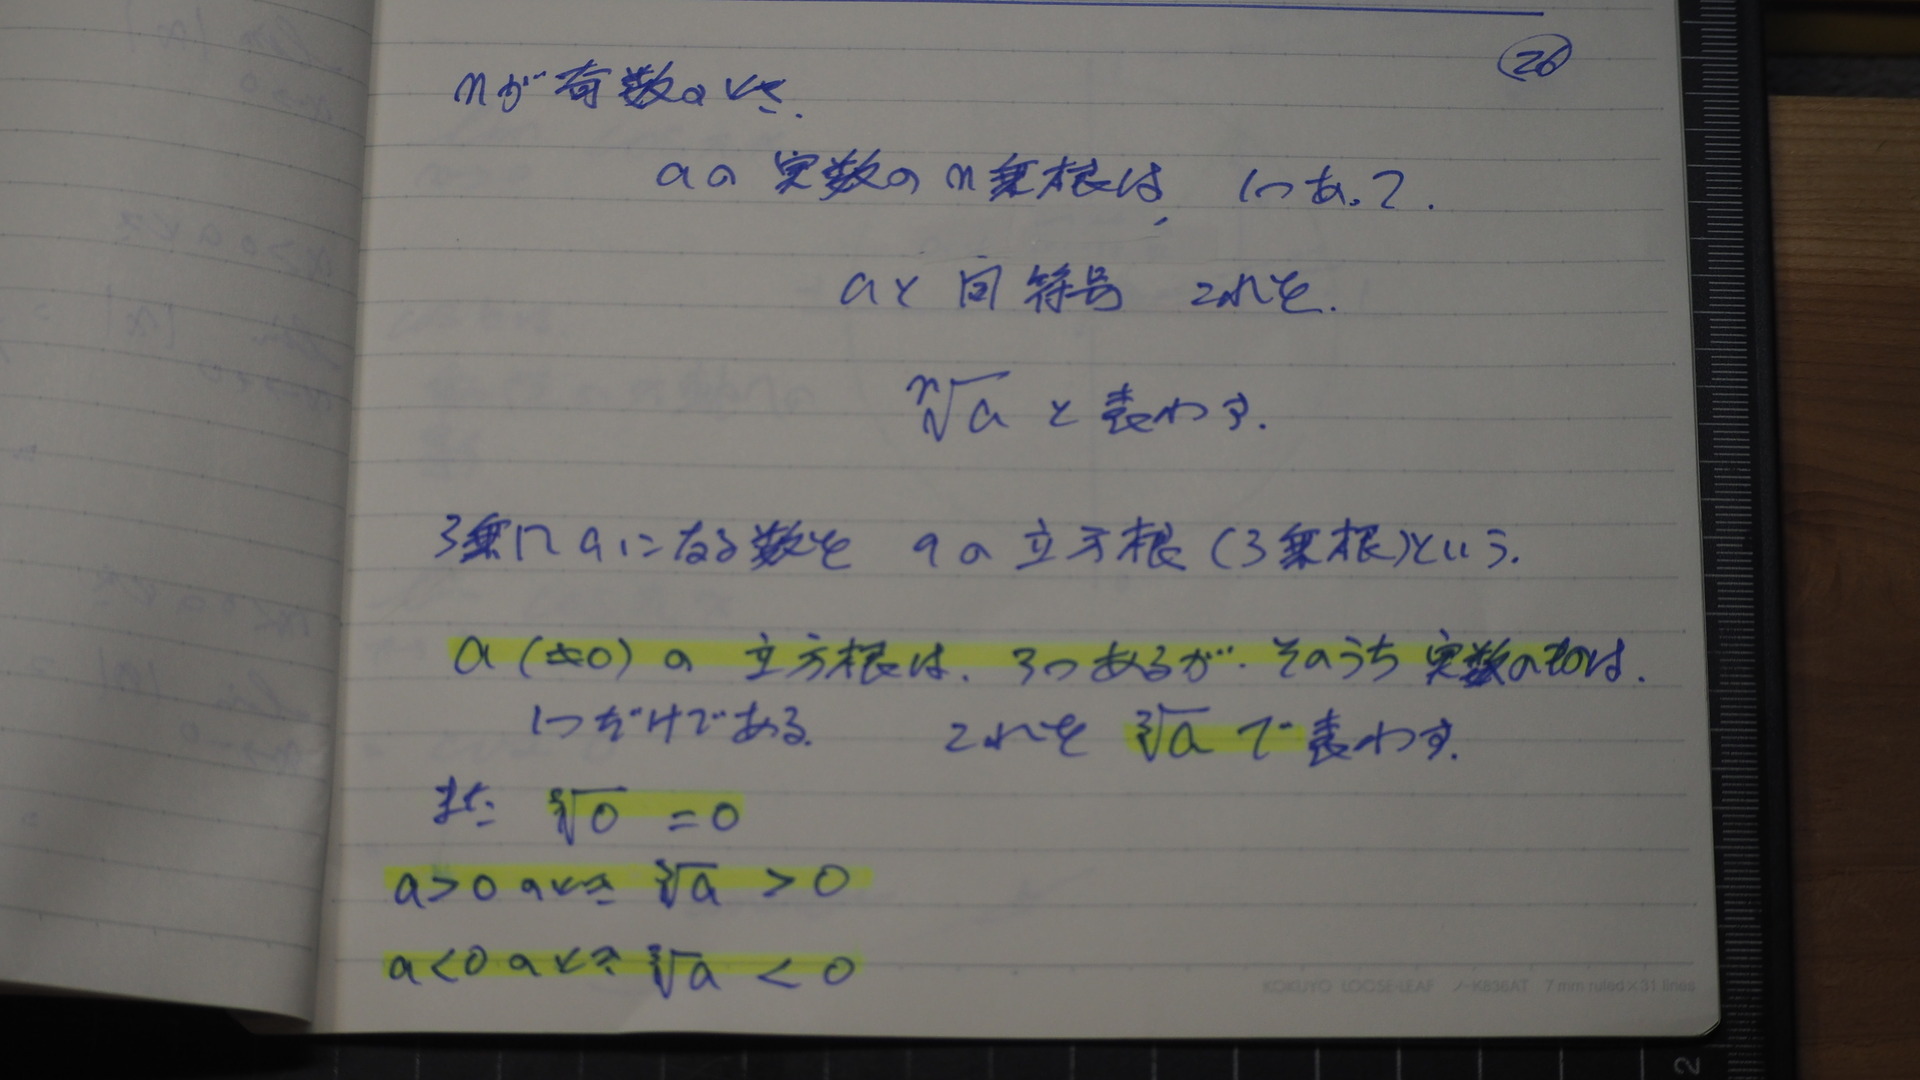 26
nが奇数のとき.
aの実数のn乗根は, 1つあって.
aと同符号 これを.
ⁿ√a と表わす.
3乗して aになる数を aの立方根(3乗根)という.
a(≠0)の 立方根は. 3つあるが. そのうち実数のものは.
1つだけである. これを ³√a で表わす.
また ³√0 = 0
a>0のとき ³√a > 0
a<0のとき ³√a < 0
KOKUYO LOOSE-LEAF ノ-K836AT 7 mm ruled×31 lines